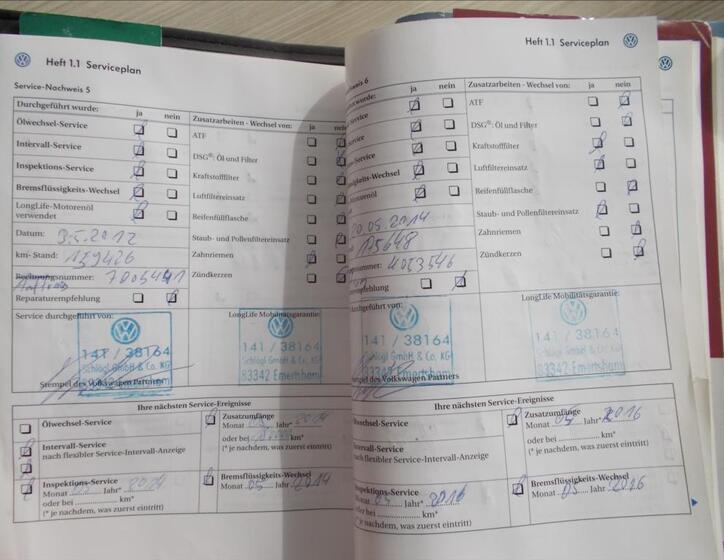 Heft 1.1 Serviceplan
Service-Nachweis 5
Durchgeführt wurde: ja nein
Ölwechsel-Service
Intervall-Service
Inspektions-Service
Bremsflüssigkeits-Wechsel
LongLife-Motorenöl
verwendet
Datum: 3.5.2012
km-Stand: 139426
Rechnungsnummer:
Auftrag
Reparaturempfehlung
Zusatzarbeiten - Wechsel von: ja nein
ATF
DSG®: Öl und Filter
Kraftstofffilter
Luftfiltereinsatz
Reifenfüllflasche
Staub- und Pollenfiltereinsatz
Zahnriemen
Zündkerzen
Service durchgeführt von:
141 / 38164
Schlögl GmbH & Co. KG
83342 Emertsham
Stempel des Volkswagen Partners
LongLife Mobilitätsgarantie:
141 / 38164
Schlögl GmbH & Co. KG
83342 Emertsham
Ihre nächsten Service-Ereignisse
Ölwechsel-Service
Intervall-Service
nach flexibler Service-Intervall-Anzeige
Inspektions-Service
Monat Jahr* 2014
oder bei km*
(* je nachdem, was zuerst eintritt)
Zusatzumfänge
Monat 05 Jahr* 2014
oder bei km*
(* je nachdem, was zuerst eintritt)
Bremsflüssigkeits-Wechsel
Monat 05 Jahr 2014
Heft 1.1 Serviceplan
weis 6
wurde: ja nein
ervice
ervice
s-Service
igkeits-Wechsel
otorenöl
20.05.2014
175648
gsnummer: 4023546
mpfehlung
Zusatzarbeiten - Wechsel von: ja nein
ATF
DSG®: Öl und Filter
Kraftstofffilter
Luftfiltereinsatz
Reifenfüllflasche
Staub- und Pollenfiltereinsatz
Zahnriemen
Zündkerzen
durchgeführt von:
141 / 38164
Schlögl GmbH & Co. KG
83342 Emertsham
pel des Volkswagen Partners
LongLife Mobilitätsgarantie:
141 / 38164
Schlögl GmbH & Co. KG
83342 Emertsham
Ihre nächsten Service-Ereignisse
lwechsel-Service
tervall-Service
ach flexibler Service-Intervall-Anzeige
spektions-Service
onat 05 Jahr* 2016
der bei km*
je nachdem, was zuerst eintritt)
Zusatzumfänge
Monat 05 Jahr* 2016
oder bei km*
(* je nachdem, was zuerst eintritt)
Bremsflüssigkeits-Wechsel
Monat 05 Jahr 2016